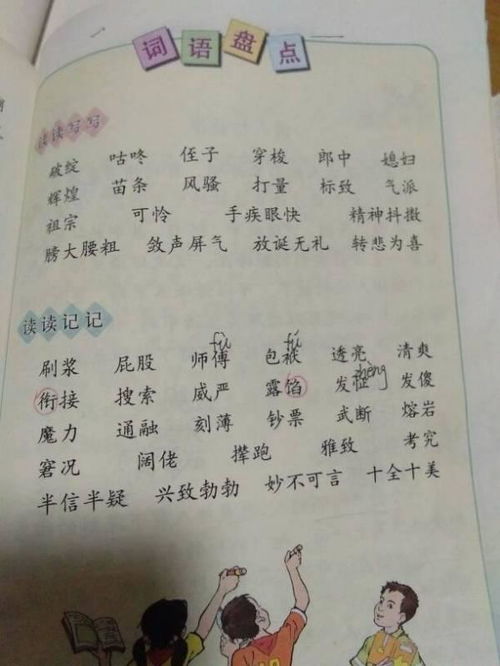 词语盘点
读读写写
破绽 咕咚 侄子 穿梭 郎中 媳妇
辉煌 苗条 风骚 打量 标致 气派
祖宗 可怜 手疾眼快 精神抖擞
膀大腰粗 敛声屏气 放诞无礼 转悲为喜
读读记记
fù fú
刷浆 屁股 师傅 包袱 透亮 清爽
zhēng
衔接 搜索 威严 露馅 发怔 发傻
魔力 通融 刻薄 钞票 武断 熔岩
窘况 阔佬 撵跑 雅致 考究
半信半疑 兴致勃勃 妙不可言 十全十美